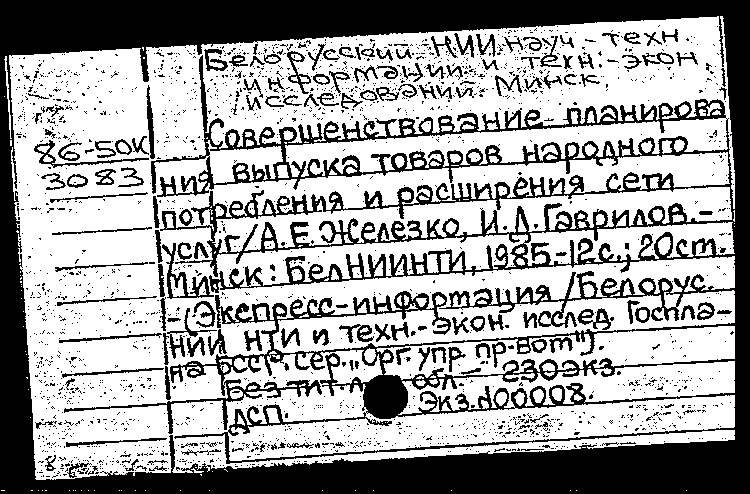 Белорусский НИИ науч.-техн.
информации и техн.-экон.
исследований. Минск.
86-50К
3083
Совершенствование планирова
ния выпуска товаров народного
потребления и расширения сети
услуг/А.Е.Железко, И.Д.Гаврилов.-
Минск: БелНИИНТИ, 1985.-12с.; 20см.
-(Экспресс-информация/Белорус.
НИИ НТИ и техн.-экон. исслед. Госпла-
на БССР. Сер. „Орг. упр. пр-вом").
Без тит. л. обл. - 230экз.
ДСП. Экз.N00008.
8